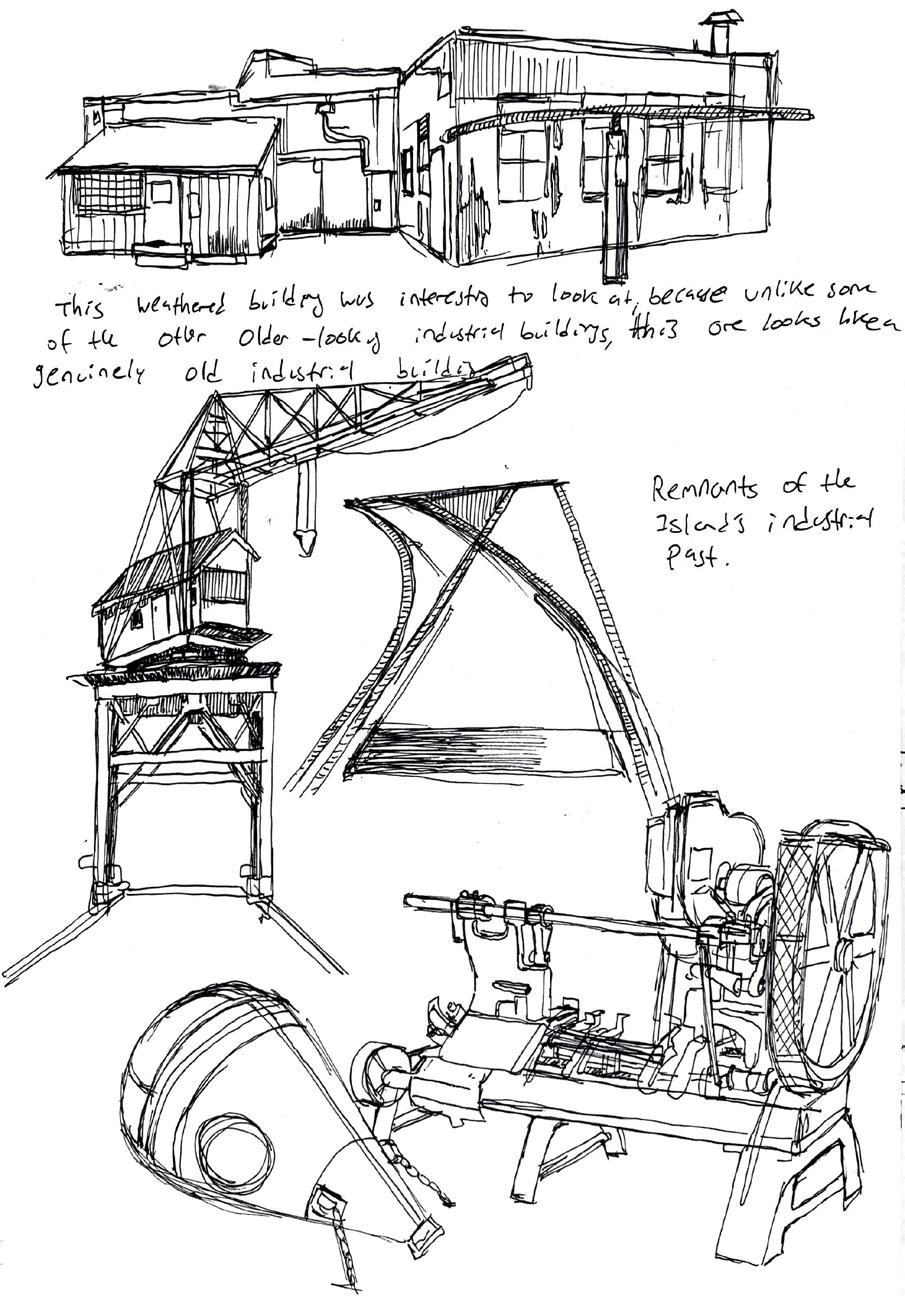 This weathered building was interesting to look at, because unlike some
of the other older-looking industrial buildings, this one looks like a
genuinely old industrial building
Remnants of the
Island's industrial
past.